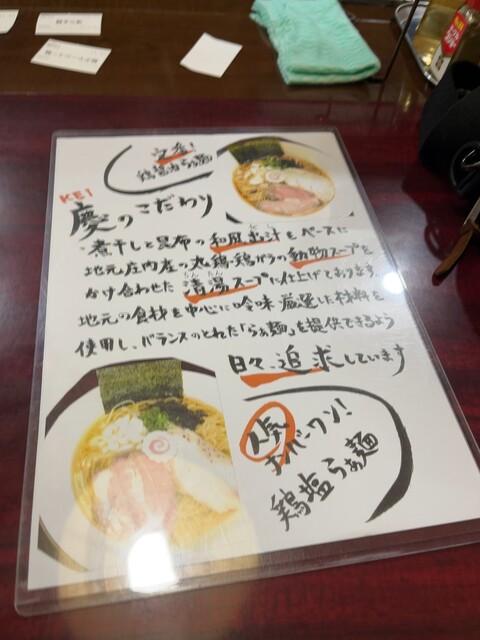 定番!
鶏醤油らぁ麺
KEI
慶のこだわり
煮干しと昆布の和風出汁をベースに
地元庄内産の丸鶏・鶏ガラの動物スープを
かけ合わせた清湯スープに仕上げております。
ちん たん
地元の食材を中心に吟味・厳選した材料を
使用し、バランスのとれた「らぁ麺」を提供できるよう
日々、追求しています
人気
ナンバーワン!
鶏塩らぁ麺